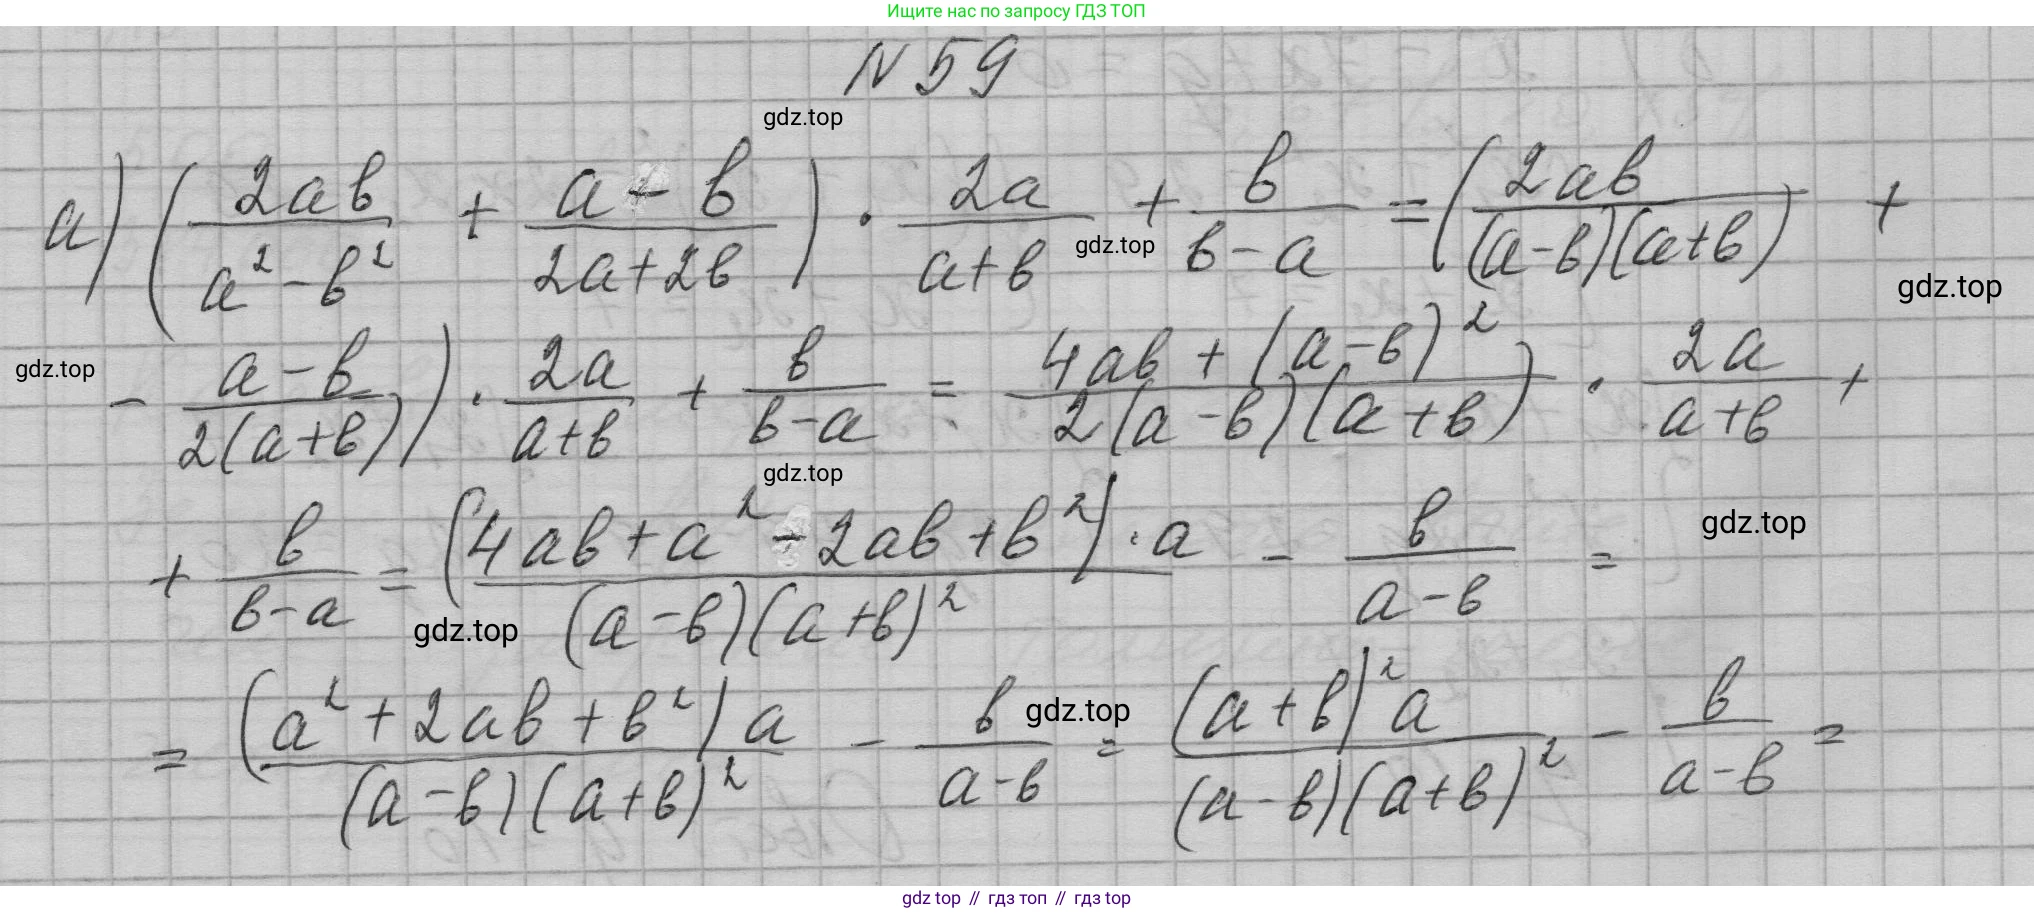 Ищите нас по запросу ГДЗ ТОП
N 59
gdz.top
а) (2ab/(a² - b²) + (a - b)/(2a + 2b)) · 2a/(a + b) + b/(b - a) = (2ab/((a - b)(a + b)) +
gdz.top
gdz.top
gdz.top
- (a - b)/(2(a + b))) · 2a/(a + b) + b/(b - a) = (4ab + (a - b)²)/(2(a - b)(a + b)) · 2a/(a + b) +
gdz.top
+ b/(b - a) = ((4ab + a² - 2ab + b²) · a)/((a - b)(a + b)²) - b/(a - b) =
gdz.top
gdz.top
= ((a² + 2ab + b²) a)/((a - b)(a + b)²) - b/(a - b) = ((a + b)² a)/((a - b)(a + b)²) - b/(a - b) =
gdz.top
gdz top // гдз топ // гдз top